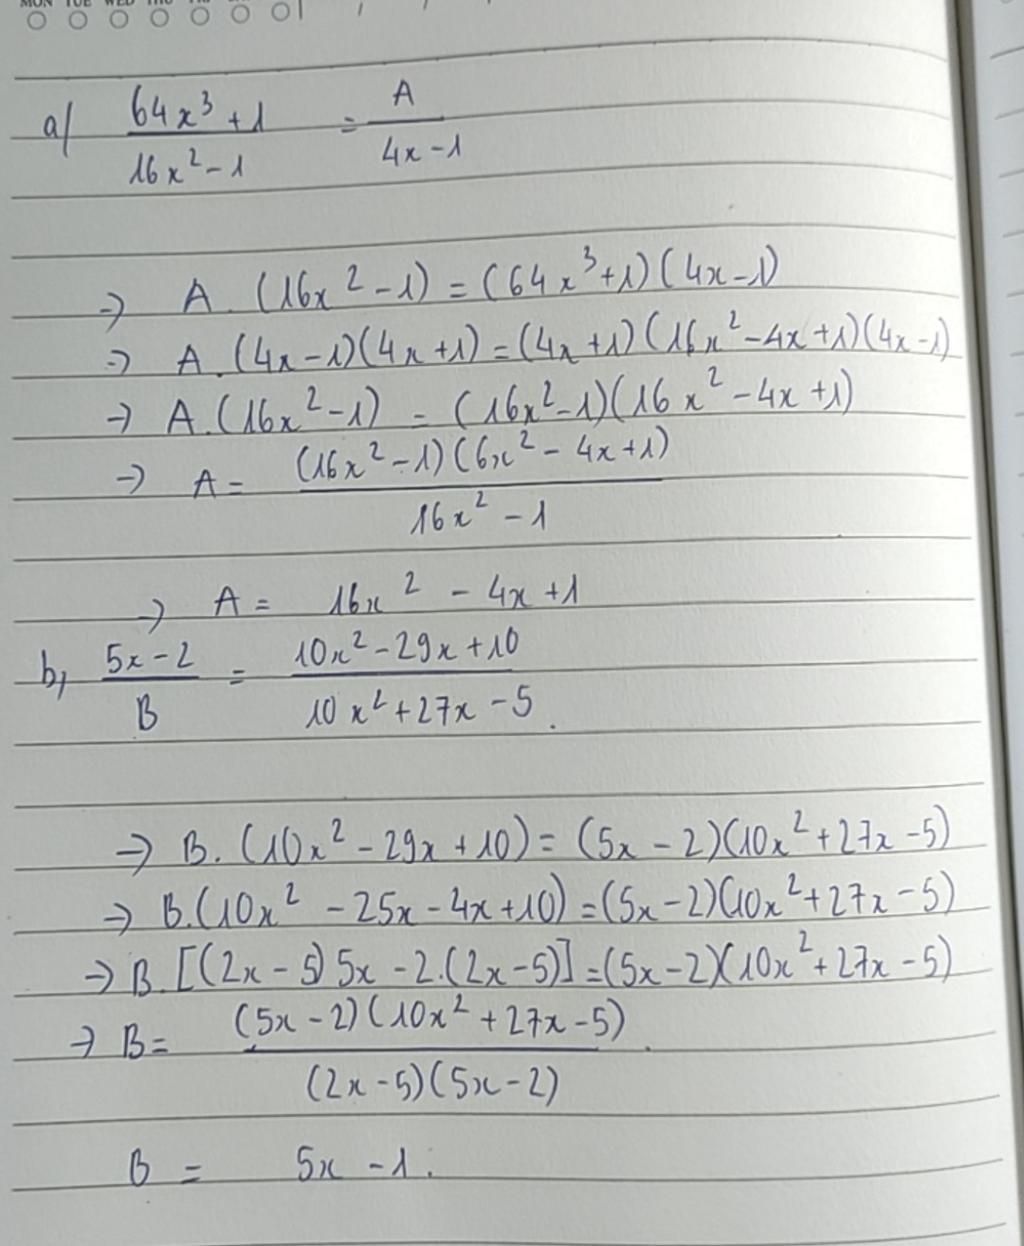 MON TUE WED THU
a/ (64x³ + 1)/(16x² - 1) = A/(4x - 1)
→ A. (16x² - 1) = (64x³ + 1)(4x - 1)
→ A. (4x - 1)(4x + 1) = (4x + 1)(16x² - 4x + 1)(4x - 1)
→ A. (16x² - 1) = (16x² - 1)(16x² - 4x + 1)
→ A = (16x² - 1)(6x² - 4x + 1)/(16x² - 1)
→ A = 16x² - 4x + 1
b, (5x - 2)/B = (10x² - 29x + 10)/(10x² + 27x - 5).
→ B. (10x² - 29x + 10) = (5x - 2)(10x² + 27x - 5)
→ B. (10x² - 25x - 4x + 10) = (5x - 2)(10x² + 27x - 5)
→ B. [(2x - 5) 5x - 2.(2x - 5)] = (5x - 2)(10x² + 27x - 5)
→ B = (5x - 2)(10x² + 27x - 5)/(2x - 5)(5x - 2).
B = 5x - 1.